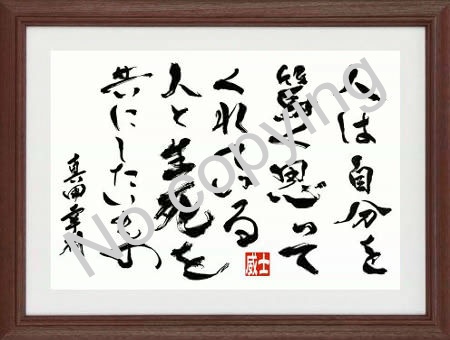 人は自分を
篤く思って
くれている
人と生死を
共にしたいもの
真田幸村
威士
No copying